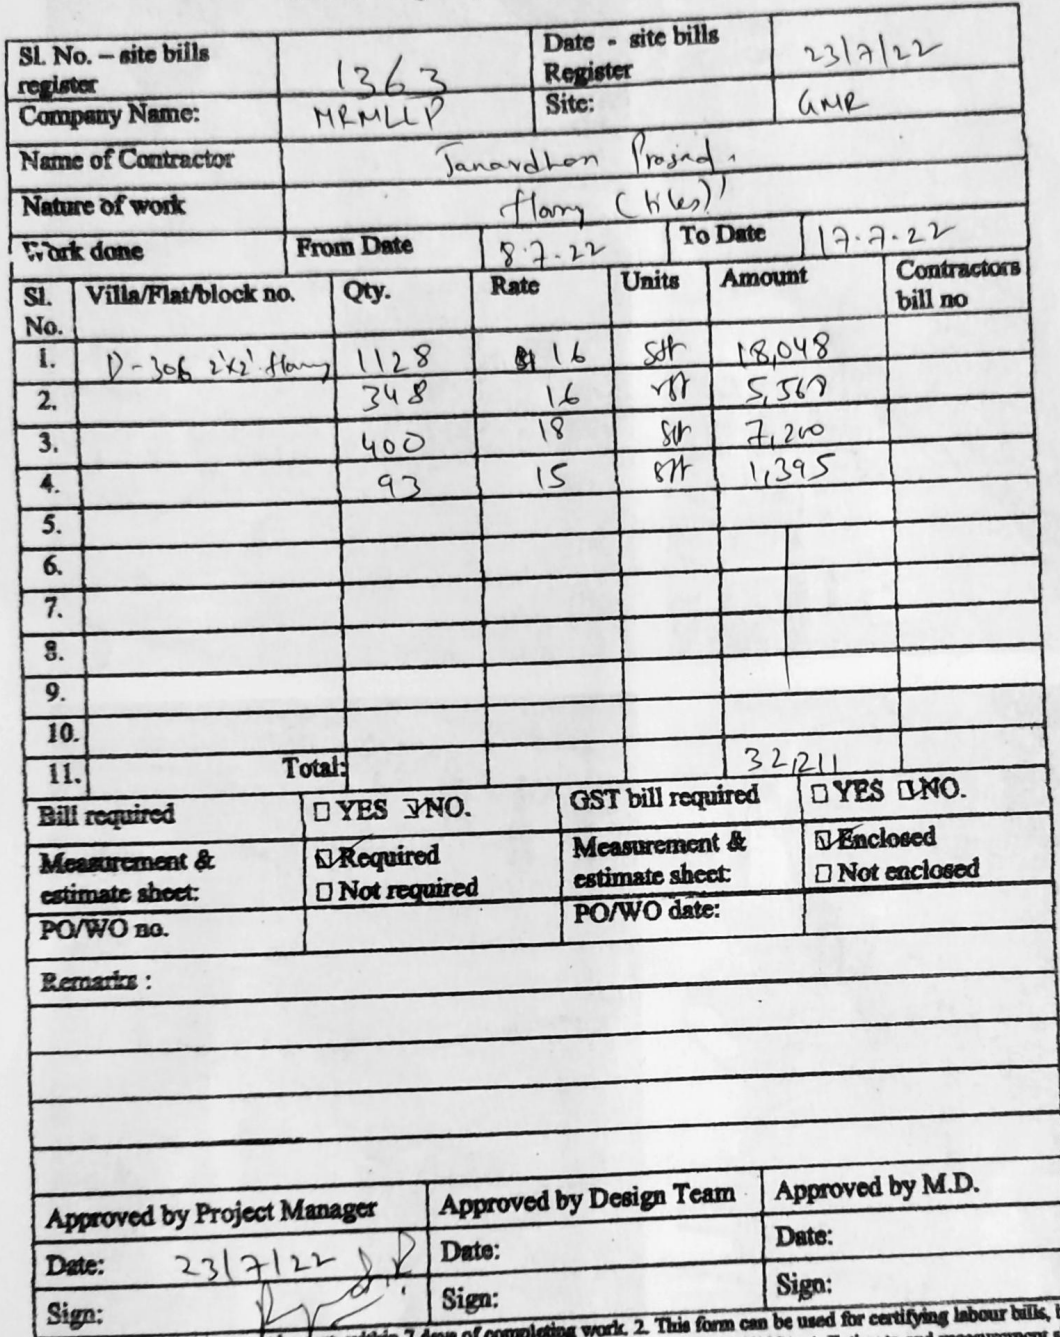 Sl. No. – site bills register 1363 Date - site bills Register 23/7/22
Company Name: MRMLLP Site: GMR
Name of Contractor Janardhan Prasad
Nature of work (tiles)
Work done From Date 8.7.22 To Date 17.7.22
Sl. No. Villa/Flat/block no. Qty. Rate Units Amount Contractors bill no
1. D-306 2'x2' 1128 16 sft 18,048
2. 348 16 rft 5,568
3. 400 18 sft 7,200
4. 93 15 rft 1,395
5.
6.
7.
8.
9.
10.
11. Total: 32,211
Bill required YES NO. GST bill required YES NO.
Measurement & estimate sheet: Required Not required Measurement & estimate sheet: Enclosed Not enclosed
PO/WO no. PO/WO date:
Remarks :
Approved by Project Manager Approved by Design Team Approved by M.D.
Date: 23/7/22 Date: Date:
Sign: Sign: Sign:
7 days of completing work. 2. This form can be used for certifying labour bills,